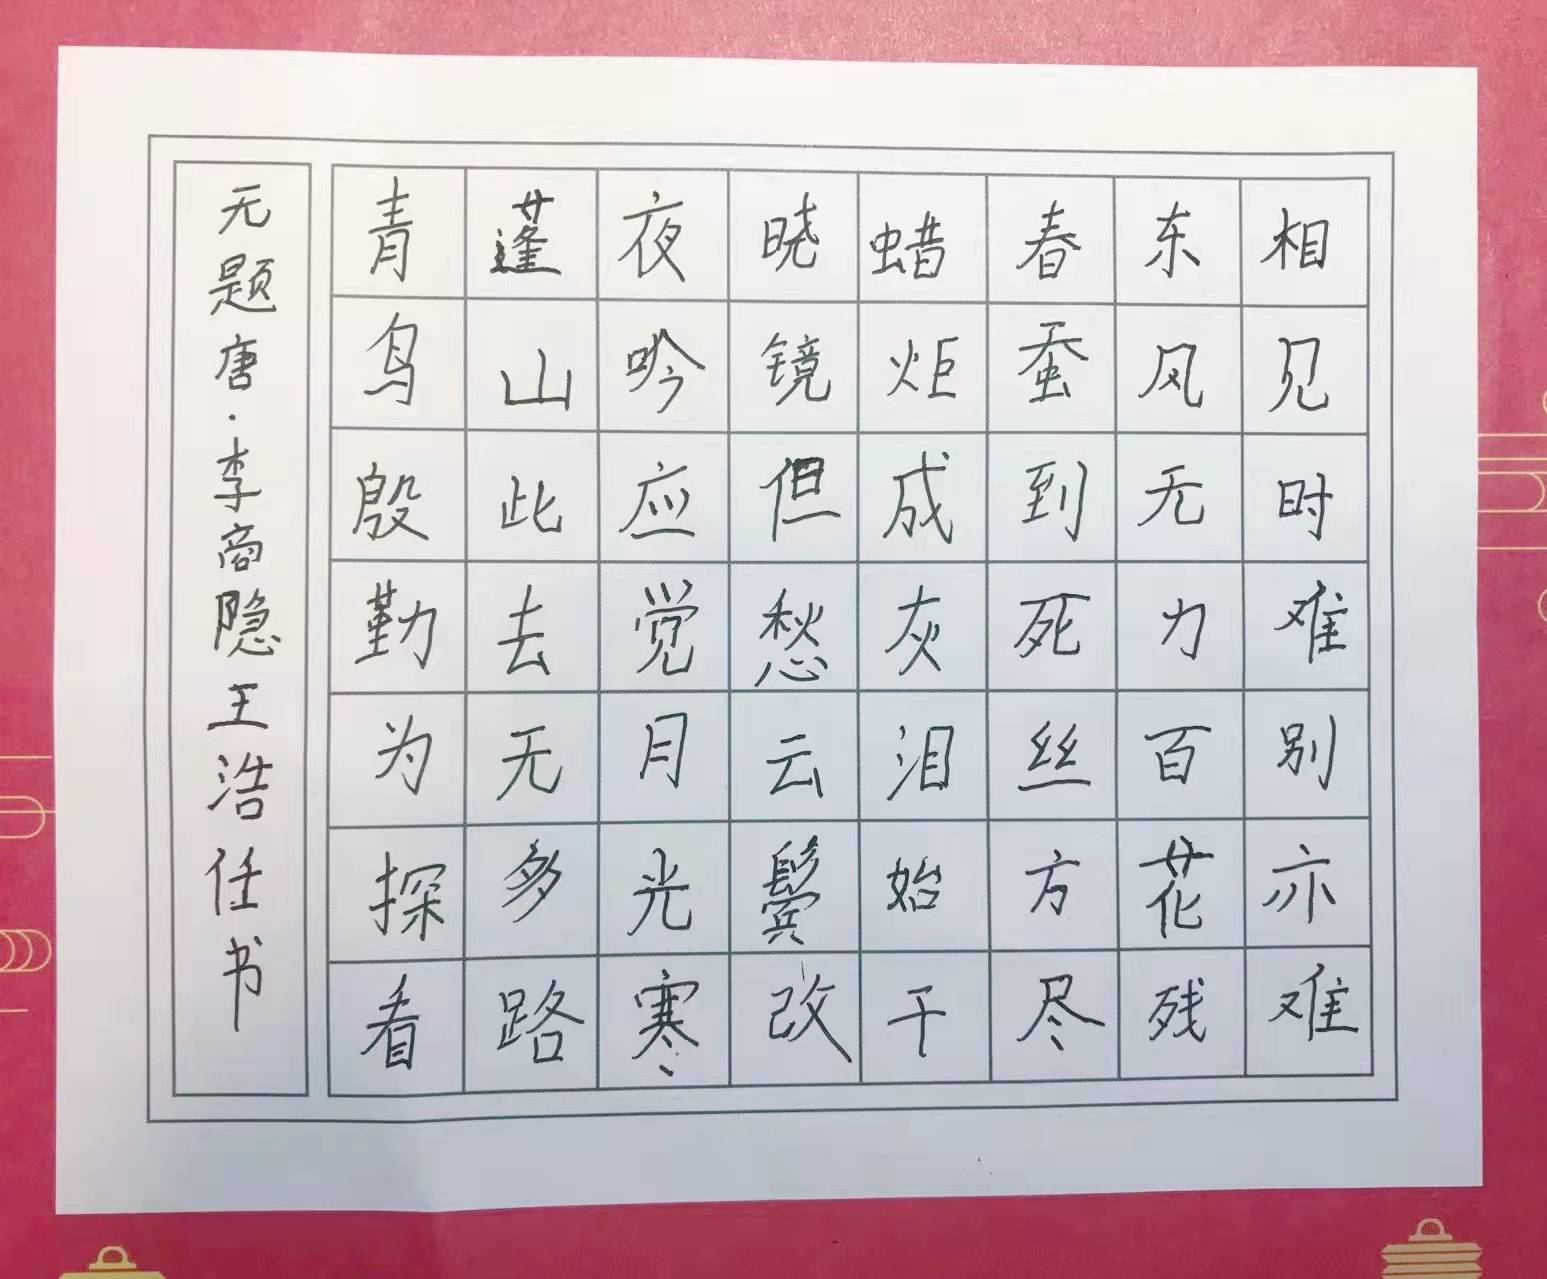 相见时难别亦难
东风无力百花残
春蚕到死丝方尽
蜡炬成灰泪始干
晓镜但愁云鬓改
夜吟应觉月光寒
蓬山此去无多路
青鸟殷勤为探看
无题唐·李商隐王浩任书